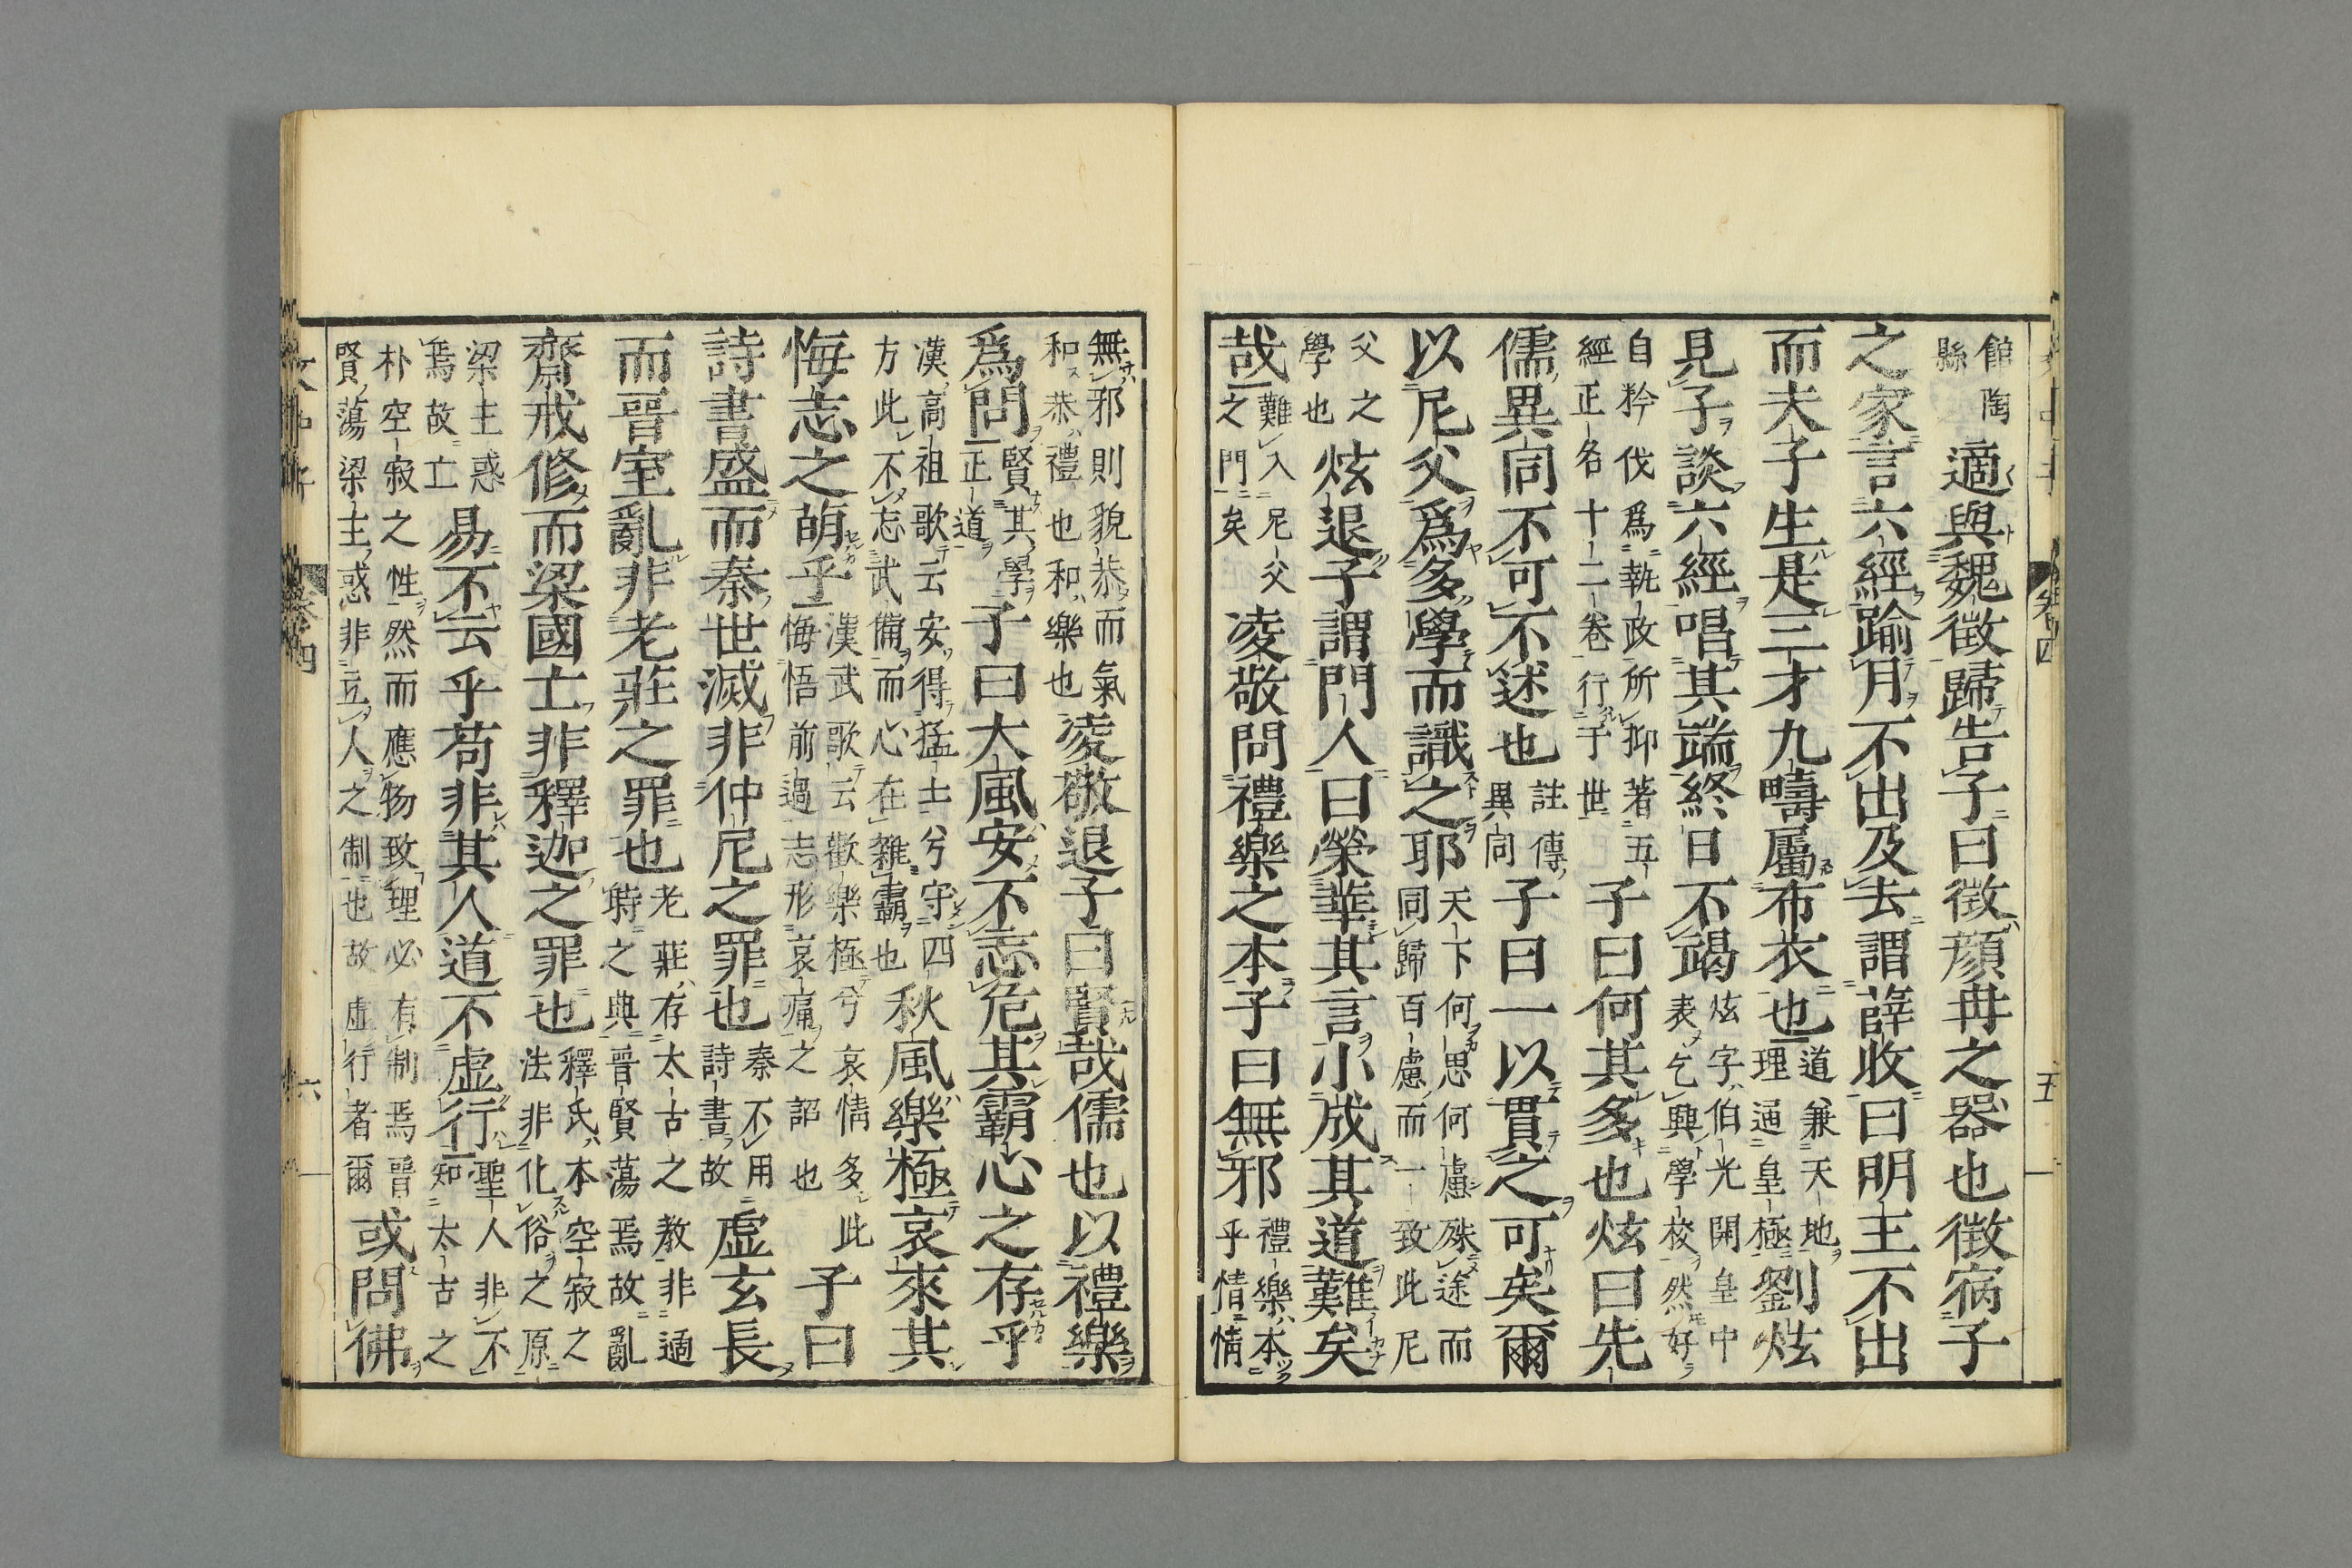 館陶縣適與魏徵歸告子曰徵顔冉之器也徵宿子
之家言六經踰月不出及去謂薛收曰明王不出
而夫子生是三才九疇屬布衣也道兼天地理通皇極劉炫
見子談六經唱其端終日不竭炫字伯光開皇中表乞興學校然好
自矜伐爲執政所抑著五經正名十二卷行于世子曰何其多也炫曰先
儒異同不可不述也註傳異同子曰一以貫之可矣爾
以尼父爲多學而識之耶天下何思何慮殊途而同歸百慮而一致此尼
父之學也炫退子謂門人曰榮華其言小成其道難矣
哉難入尼父之門矣凌敬問禮樂之本子曰無邪禮樂本乎情情
無邪則貌恭而氣和恭禮也和樂也凌敬退子曰賢哉儒也以禮樂
爲問賢其學正道子曰大風安不忘危其霸心之存乎
漢高祖歌云安得猛士兮守四方此不忘武備而心在雜霸也秋風樂極哀來其
悔志之萌乎漢武歌云歡樂極兮哀情多此悔悟前過志形哀痛之詔也子曰
詩書盛而秦世滅非仲尼之罪也秦不用詩書故虛玄長
而晉室亂非老莊之罪也老莊存太古之教非適時之典晉賢蕩焉故亂
齋戒修而梁國亡非釋迦之罪也釋氏本空寂之法非化俗之原
梁主惑焉故亡易不云乎苟非其人道不虛行聖人非不知太古之
朴空寂之性然而應物致理必有制焉晉賢蕩梁主惑非立人之制也故虛行者爾或問佛
卷四
五
卷四
六